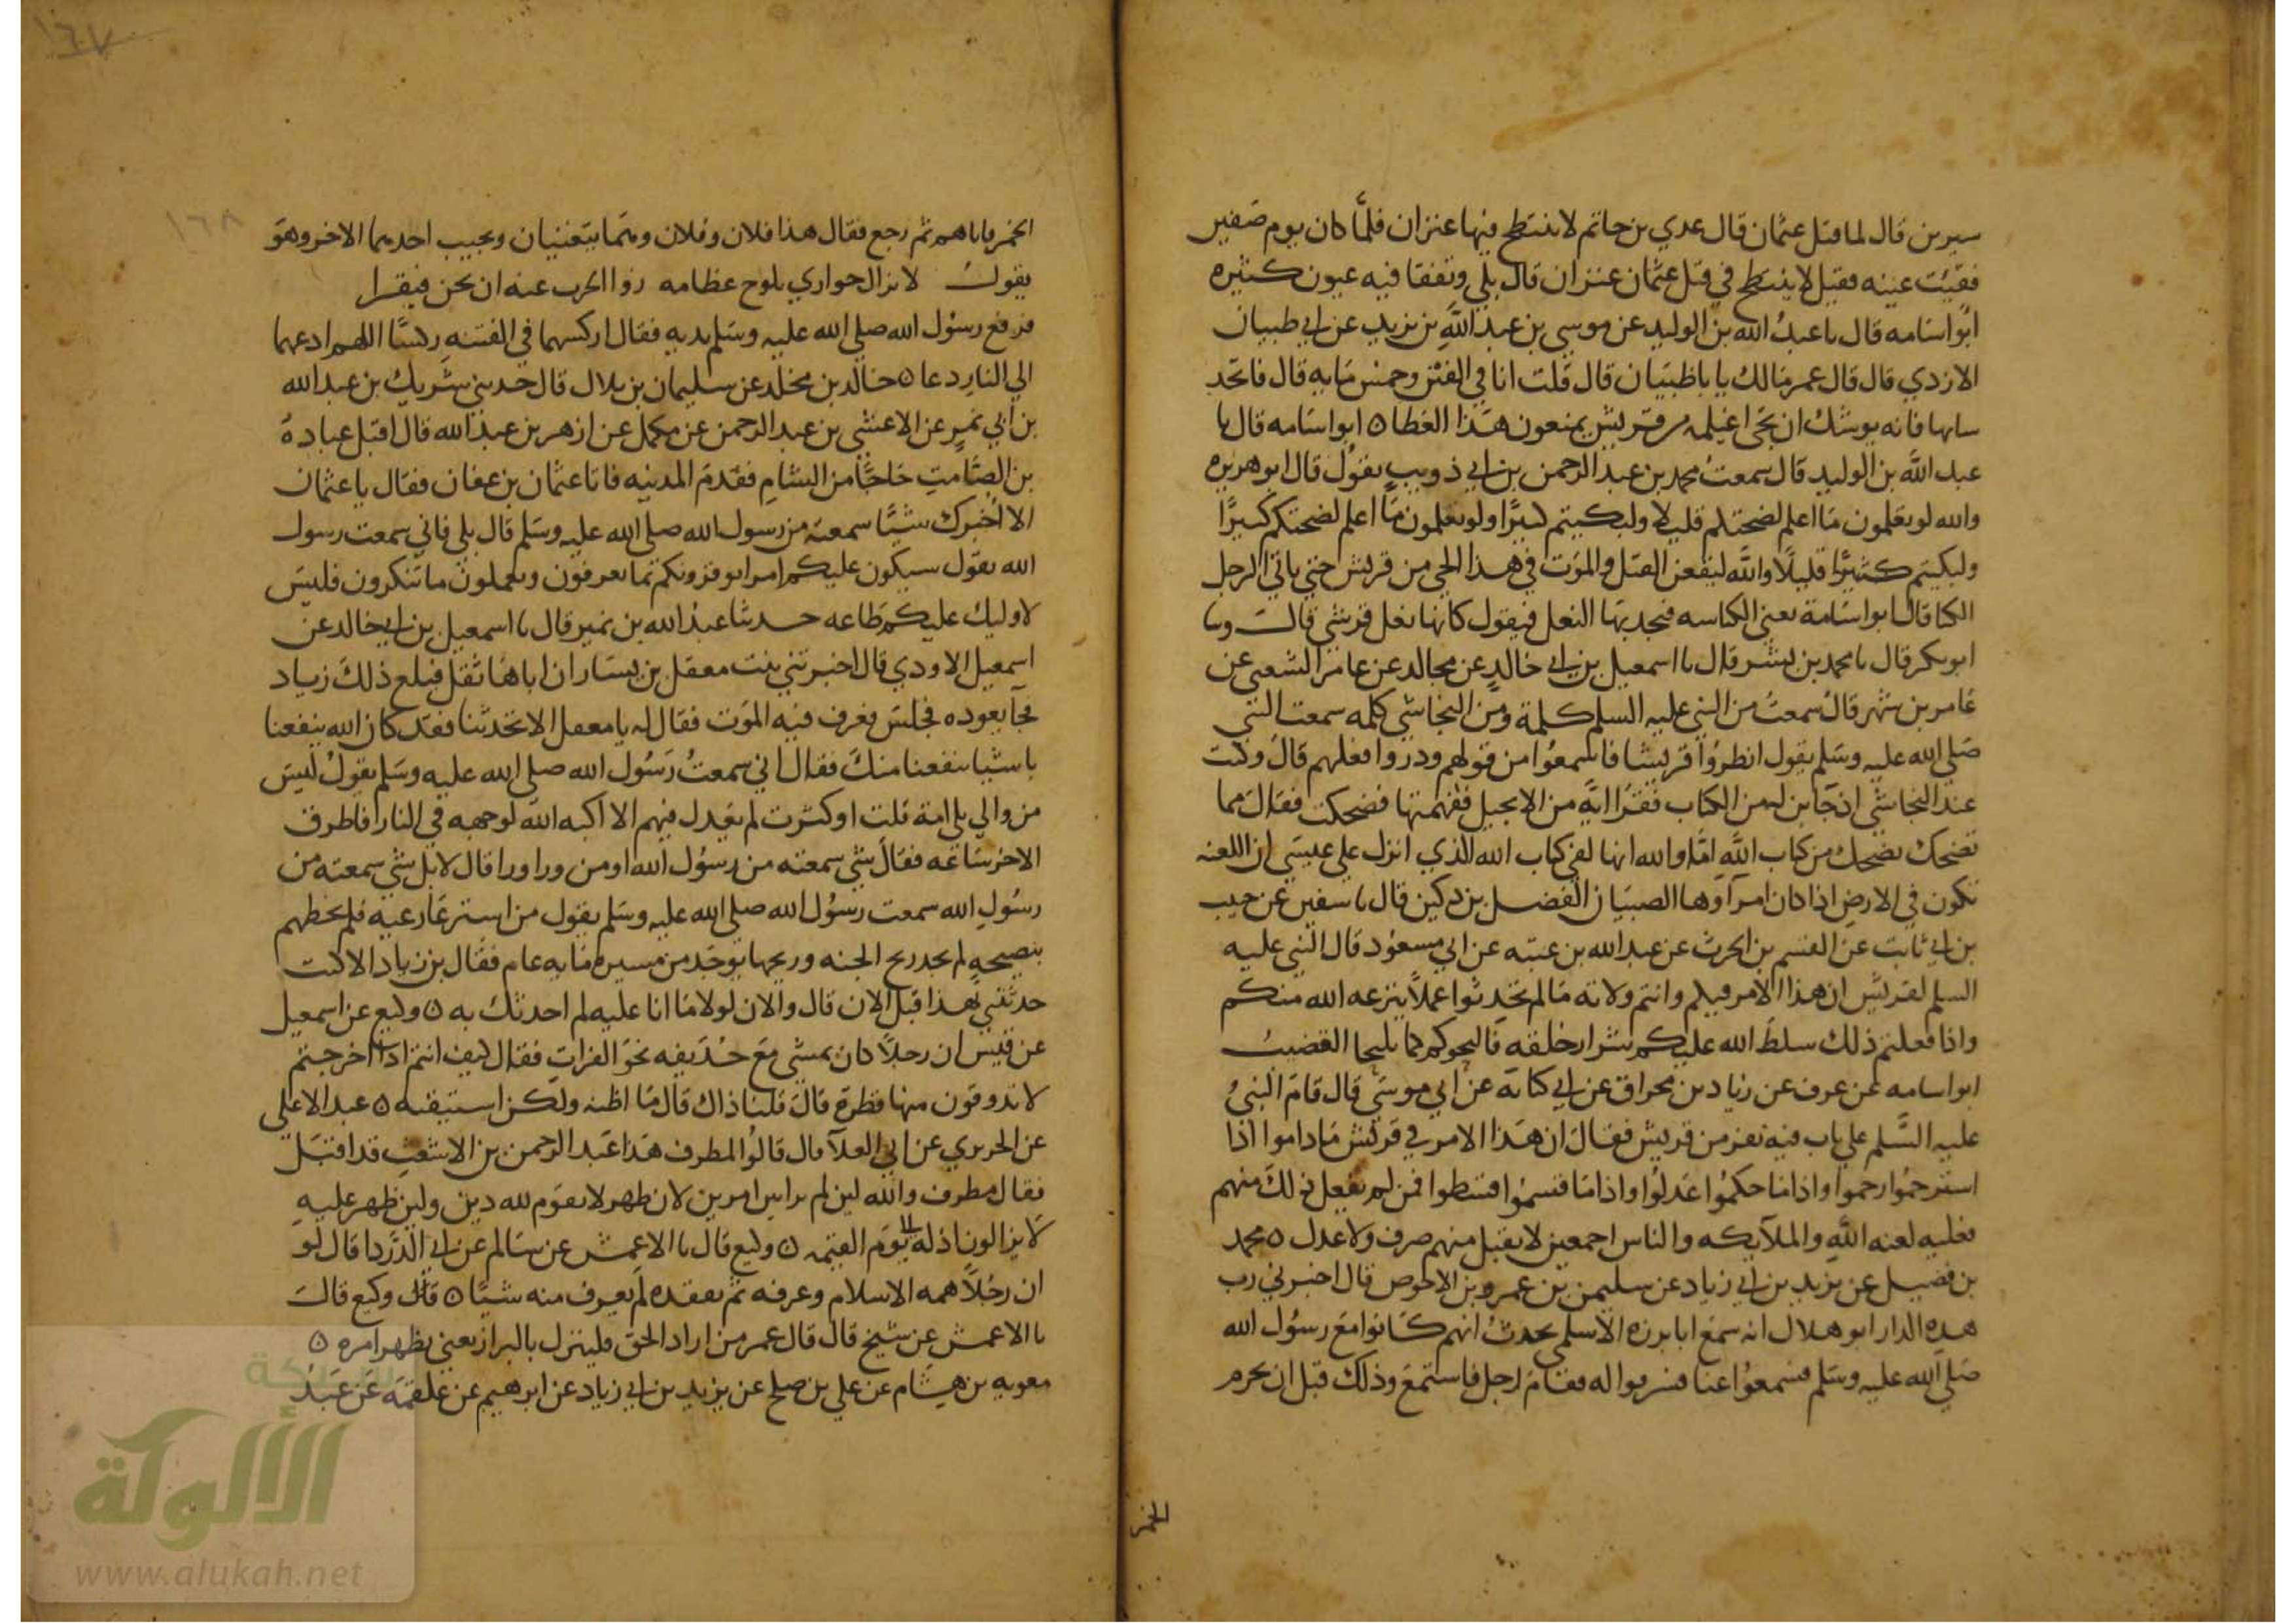 سيرين قال لما قتل عثمان قال عدي بن حاتم لا ينتطح فيها عنزان فلما كان يوم صفين
فقئت عينه فقيل لا ينتطح في قتل عثمان عنزان قال بلي وتفقا فيه عيون كثيره
ابو اسامه قال نا عبد الله بن الوليد عن موسى بن عبد الله بن يزيد عن ابي ظبيان
الازدي قال قال عمر مالك يا با ظبيان قال قلت انا في الفين وخمس مايه قال فاتخذ
سابيا فانه يوشك ان يجي اغيلمه من قريش يمنعون هذا العطا ه ابو اسامه قال نا
عبد الله بن الوليد قال سمعت محمد بن عبد الرحمن بن ابي ذويب يقول قال ابو هريره
والله لو تعلمون ما اعلم لضحكتم قليلا ولبكيتم كثيرا ولو تعلمون ما اعلم لضحكتم كثيرا
ولبكيتم كثيرا قليلا والله ليقعن القتل والموت في هذا الحي من قريش حتي ياتي الرجل
الكنا قال ابو اسامة يعني الكناسه فيجد بها النعل فيقول كانها نعل قرشي قال وسا
ابو بكر قال نا محمد بن بشر قال نا اسمعيل بن ابي خالد عن مجالد عن عامر الشعبي عن
عامر بن شهر قال سمعت من النبي عليه السلم كلمة ومن النجاشي كلمه سمعت النبي
صلى الله عليه وسلم يقول انظروا قريشا فاسمعوا من قولهم وذروا فعلهم قال وكنت
عند النجاشي اذ جا ابن له من الكتاب فقرا اية من الانجيل ففهمتها فضحكت فقال مما
تضحك تضحك من كتاب الله اما والله انها لفي كتاب الله الذي انزل علي عيسي ان اللعنه
تكون في الارض اذا كان امراوها الصبيان الفضل بن دكين قال نا سفين عن حبيب
بن ابي ثابت عن القسم بن الحرث عن عبد الله بن عتبه عن ابي مسعود قال النبي عليه
السلم لقريش ان هذا الامر فيكم وانتم ولاته ما لم تحدثوا عملا ينزعه الله منكم
واذا فعلتم ذلك سلط الله عليكم شرار خلقه فالتحوكم كما يلتحا القضيب
ابو اسامه عن عوف عن زياد بن مخراق عن ابي كنانه عن ابي موسى قال قام النبي
عليه السلم علي باب فيه نفر من قريش فقال ان هذا الامر في قريش ما داموا اذا
استرحموا رحموا واذا ما حكموا عدلوا واذا ما قسموا اقسطوا فمن لم يفعل ذلك منهم
فعليه لعنه الله والملايكه والناس اجمعين لا يقبل منهم صرف ولا عدل ه محمد
بن فضيل عن يزيد بن ابي زياد عن سليمن بن عمرو بن الاحوص قال اخبرني رب
هذه الدار ابو هلال انه سمع ابا برزه الاسلمي يحدث انهم كانوا مع رسول الله
صلى الله عليه وسلم فسمعوا غنا فتشرفوا له فقام رجل فاستمع وذلك قبل ان يحرم
الخمر
الخمر فاتاهم ثم رجع فقال هذا فلان وفلان وهما يتغنيان ويجيب احدهما الاخر وهو
يقول لا يزال حواري يلوح عظامه زوا الحرب عنه ان يجن فيقبرا
فرفع رسول الله صلى الله عليه وسلم يديه فقال اركسهما في الفتنه ركسا اللهم ادعهما
الي النار دعا ه خالد بن مخلد عن سليمان بن بلال قال حدثني شريك بن عبد الله
بن ابي نمير عن الاعشي بن عبد الرحمن عن مكمل عن ازهر بن عبد الله قال اقبل عبادة
بن الصامت حاجا من الشام فقدم المدينه فاتا عثمان بن عفان فقال يا عثمان
الا اخبرك شيا سمعته من رسول الله صلى الله عليه وسلم قال بلي فاني سمعت رسول
الله يقول سيكون عليكم امرا يومرونكم بما تعرفون ويعملون ما تنكرون فليس
لاوليك عليكم طاعه حدثنا عبد الله بن نمير قال نا اسمعيل بن ابي خالد عن
اسمعيل الاودي قال اخبرتني بنت معقل بن يسار ان اباها ثقل فبلغ ذلك زياد
فجا يعوده فجلس فعرف فيه الموت فقال له يا معقل الا تحدثنا فقد كان الله ينفعنا
باشيا نسمعها منك فقال اني سمعت رسول الله صلى الله عليه وسلم يقول ليس
من والي يلي امة قلت او كثرت لم يعدل فيهم الا اكبه الله لوجهه في النار فاطرق
الاخر ساعه فقال شي سمعته من رسول الله او من ورا ورا قال لا بل شي سمعته من
رسول الله سمعت رسول الله صلى الله عليه وسلم يقول من استرعا رعيه فلم يحطهم
بنصيحه لم يجد ريح الجنه وريحها يوجد من مسيره مايه عام فقال بن زياد الا كنت
حدثتني بهذا قبل الان قال والان لولا ما انا عليه لم احدثك به ه وكيع عن اسمعيل
عن قيس ان رجلا كان يمشي مع حذيفه نحو الفرات فقال كيف انتم اذا اخرجتم
لا تذوقون منها قطرة قال قلنا ذاك قال ما اظنه ولكن استيقنه ه عبد الاعلي
عن الجريري عن ابي العلا قال قالوا لمطرف هذا عبد الرحمن بن الاشعث قد اقبل
فقال مطرف والله لين لم براس امرين لان ظهر لا يقوم لله دين ولين ظهر عليه
لا يزالون اذله الي يوم القيمه ه وكيع قال نا الاعمش عن سالم عن ابي الدردا قال لو
ان رجلا همه الاسلام وعرفه ثم تفقده لم يعرف منه شيا ه قال وكيع قال
نا الاعمش عن شيخ قال قال عمر من اراد الحق فلينزل بالبراز يعني يظهر امره ه
معويه بن هشام عن علي بن صلح عن يزيد بن ابي زياد عن ابرهيم عن علقمه عن عبد
١٦٧
١٦٨
شبكة
الألوكة
www.alukah.net